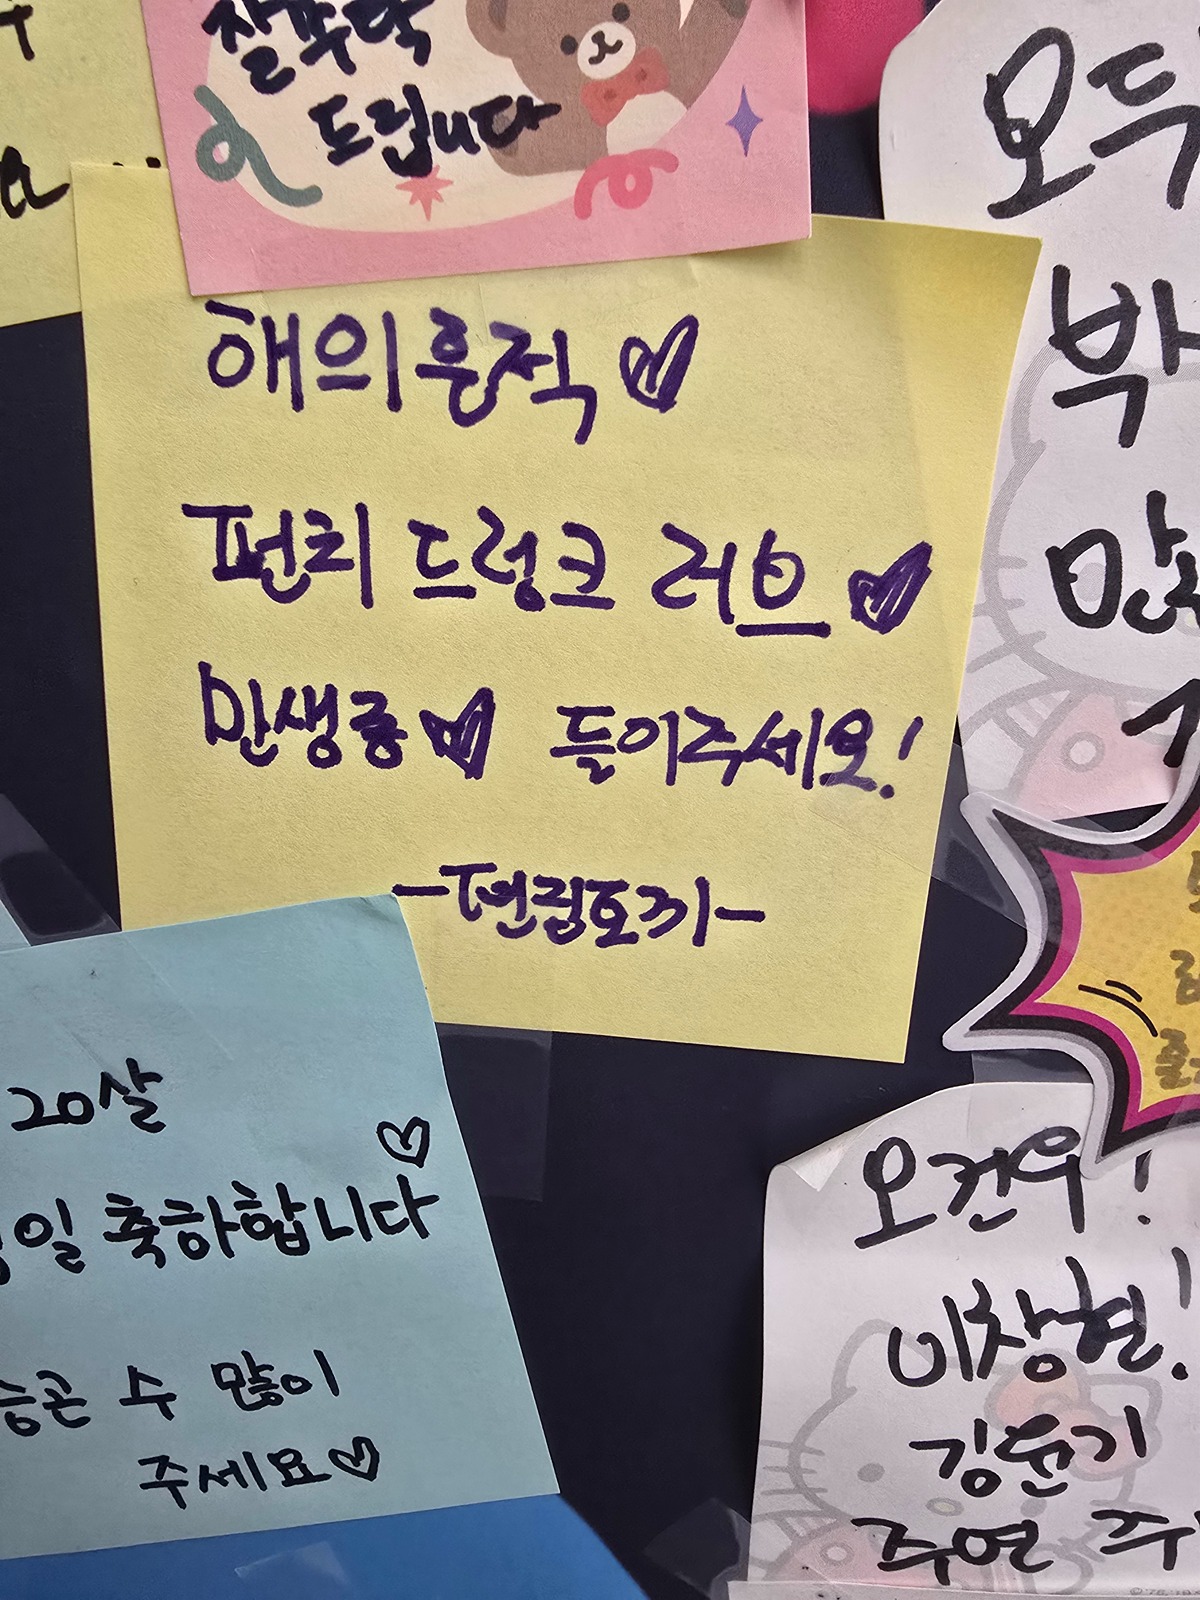 잘부탁
드립니다
해의흔적♥
펀치 드렁크 러브♥
만생종♥ 들어주세요!
20살
일 축하합니다
♡
승곤 수 많이
주세요♡
모두
박
오건우!
이창현!
김윤기
주연 주